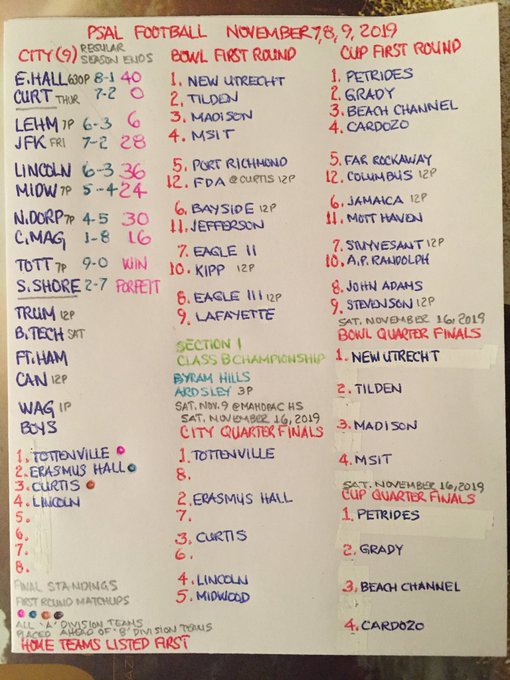 PSAL FOOTBALL NOVEMBER 7, 8, 9, 2019
CITY (9) REGULAR SEASON ENDS
E. HALL 630P 8-1 40
CURT THUR 7-2 0
LEHM 7P 6-3 6
JFK FRI 7-2 28
LINCOLN 6-3 36
MIDW 7P 5-4 24
N. DORP 7P 4-5 30
C. MAG 1-8 16
TOTT 7P 9-0 WIN
S. SHORE 2-7 FORFEIT
TRUM 12P
B. TECH SAT
FT. HAM
CAN 12P
WAG 1P
BOYS
1. TOTTENVILLE
2. ERASMUS HALL
3. CURTIS
4. LINCOLN
5.
6.
7.
8.
FINAL STANDINGS
FIRST ROUND MATCHUPS
ALL 'A' DIVISION TEAMS
PLACED AHEAD OF 'B' DIVISION TEAMS
HOME TEAMS LISTED FIRST
BOWL FIRST ROUND
1. NEW UTRECHT
2. TILDEN
3. MADISON
4. MSIT
5. PORT RICHMOND
12. FDA @ CURTIS 12P
6. BAYSIDE 12P
11. JEFFERSON
7. EAGLE II
10. KIPP 12P
8. EAGLE III 12P
9. LAFAYETTE
SECTION 1
CLASS B CHAMPIONSHIP
BYRAM HILLS
ARDSLEY 3P
SAT. NOV. 9 @ MAHOPAC HS
SAT. NOVEMBER 16, 2019
CITY QUARTER FINALS
1. TOTTENVILLE
8.
2. ERASMUS HALL
7.
3. CURTIS
6.
4. LINCOLN
5. MIDWOOD
CUP FIRST ROUND
1. PETRIDES
2. GRADY
3. BEACH CHANNEL
4. CARDOZO
5. FAR ROCKAWAY
12. COLUMBUS 12P
6. JAMAICA 12P
11. MOTT HAVEN
7. STUYVESANT 12P
10. A.P. RANDOLPH
8. JOHN ADAMS
9. STEVENSON 12P
SAT. NOVEMBER 16, 2019
BOWL QUARTER FINALS
1. NEW UTRECHT
2. TILDEN
3. MADISON
4. MSIT
SAT. NOVEMBER 16, 2019
CUP QUARTER FINALS
1. PETRIDES
2. GRADY
3. BEACH CHANNEL
4. CARDOZO